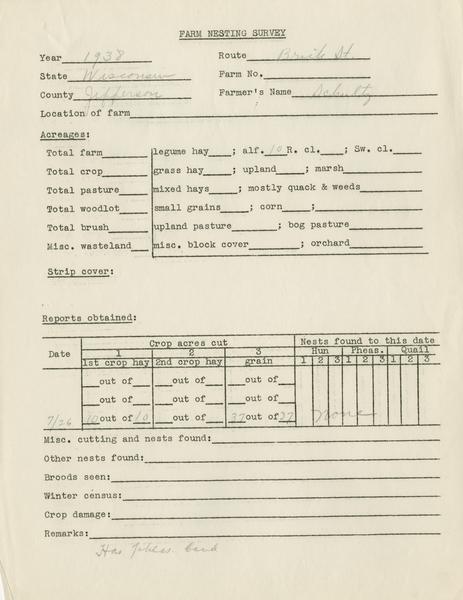 FARM NESTING SURVEY
Year 1938 Route St.
State Wisconsin Farm No.
County Jefferson Farmer's Name Schultz
Location of farm
Acreages:
Total farm legume hay ; alf. 10 R. cl. ; Sw. cl.
Total crop grass hay ; upland ; marsh
Total pasture mixed hays ; mostly quack & weeds
Total woodlot small grains ; corn ;
Total brush upland pasture ; bog pasture
Misc. wasteland misc. block cover ; orchard
Strip cover:
Reports obtained:
Crop acres cut Nests found to this date
Date 1 2 3 Hun Pheas. Quail
1st crop hay 2nd crop hay grain 1 2 3 1 2 3 1 2 3
out of out of out of
out of out of out of
7/26 10 out of 10 out of 27 out of 27 None
Misc. cutting and nests found:
Other nests found:
Broods seen:
Winter census:
Crop damage:
Remarks:
Has pheas.